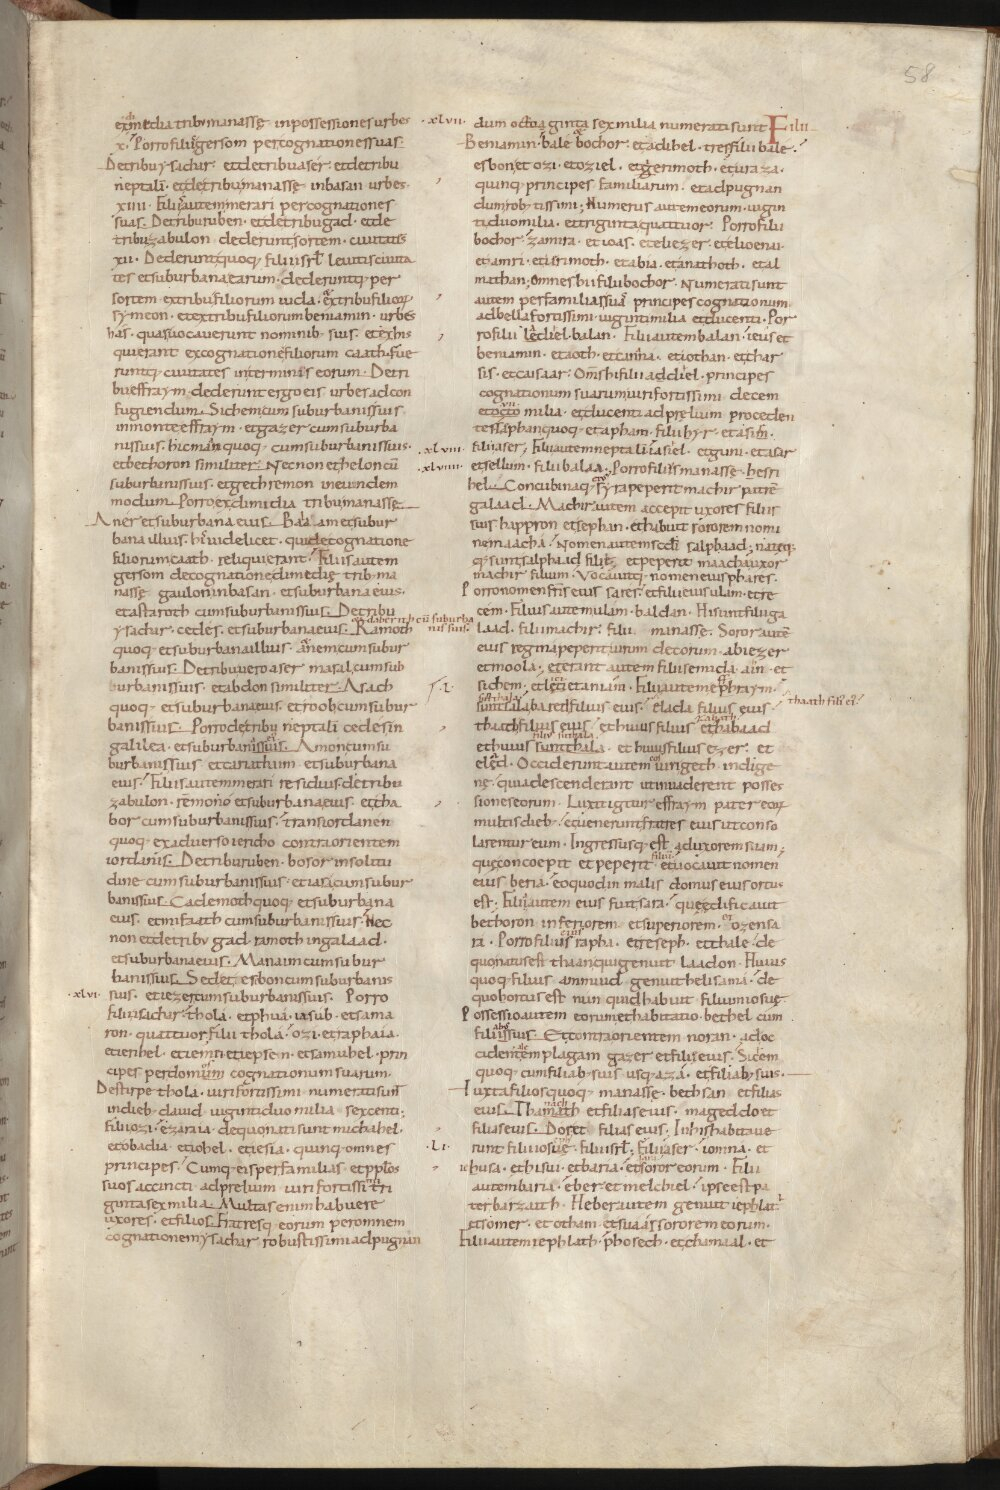 58
ex media tribu manasse in possessiones urbes
x. Porro filiis gersom per cognationes suas.
De tribu ysachar. et de tribu aser. et de tribu
neptali. et de tribu manasse in basan urbes.
xiii. Filiis autem merari per cognationes
suas. De tribu ruben. et de tribu gad. et de
tribu zabulon dederunt sortem. civitates
xii. Dederunt quoq; filii isrl levitis civita
tes et suburbana earum. dederuntq; per
sortem. ex tribu filiorum iuda. et ex tribu filiorum
symeon. et ex tribu filiorum beniamin. urbes
has. quas vocaverunt nominib; suis. et ex his
qui erant ex cognatione filiorum caath. fue
runtq; civitates in terminis eorum. De tri
bu effraym. dederunt ergo eis urbes ad con
fugiendum. Sichem cum suburbanis suis
in monte effraym. et gazer cum suburba
nis suis. hicman quoq; cum suburbanis suis.
et bethoron similiter. Nec non et helon cū
suburbanis suis. et gethremon in eundem
modum. Porro ex dimidia tribu manasse
Aner et suburbana eius. Balaam et subur
bana illius. his videlicet. qui de cognatione
filiorum caath. reliqui erant. Filiis autem
gersom de cognatione dimedie trib; ma
nasse gaulon in basan. et suburbana eius.
et astaroth cum suburbanis suis. De tribu
ysachar. cedes. et suburbana eius. Ramoth
et daberith cū suburba
nis suis.
quoq; et suburbana illius. anem cum subur
banis suis. De tribu vero aser masal cum sub
urbanis suis. et abdon similiter. Asach
quoq; et suburbana eius. et roob cum subur
banis suis. Porro de tribu neptali cedes in
galilea. et suburbanis suis. Amon cum su
burbanis suis et cariathaim et suburbana
eius. Filiis autem merari residuis. de tribu
zabulon. remono et suburbana eius. et tha
bor cum suburbanis suis. trans iordanen
quoq; ex adverso iericho contra orientem
iordanis. De tribu ruben. bosor in solitu
dine cum suburbanis suis. et iasa cum subur
banis suis. Cademoth quoq; et suburbana
eius. et mifaath cum suburbanis suis. Nec
non et de tribu gad. ramoth in galaad.
et suburbana eius. Manaim cum subur
banis suis. Sed et esbon cum suburbanis
.xlvi. suis. et iezer cum suburbanis suis. Porro
filii isachar. thola. et phua. iasub. et sama
ron. quattuor. Filii thola. ozi. et raphaia.
et ierihel. et iemri et iepsen. et samuhel. prin
cipes per domum cognationum suarum.
De stirpe thola. viri fortissimi numerati sun
in dieb; david viginti duo milia sexcenti;
Filii ozi. ezaraia. de quo nati sunt michahel.
et obadia. et iohel. et iesia. quinq; omnes
principes. Cumq; eis per familias. et pplos
suos accincti ad prelium viri fortissimi tri
ginta sex milia. Multas enim habuere
uxores. et filios. Fratresq; eorum per omnem
cognationem ysachar robustissimi ad pugnan
.xlvii. dum octoaginta sex milia numerati sunt. Filii
Beniamin. bale. bochor. et adihel. tres. filii bale.
esbon et ozi. et oziel. et gerimoth. et uraza.
quinq; principes familiarum. et ad pugnan
dum robustissimi; Numerus autem eorum. vigin
ti duo milia. et triginta quattuor. Porro filii
bochor. zamira. et ioas. et eliezer. et elioenai.
et amri. et ierimoth. et abia. et anathoth. et al
mathan; omnes hii filii bochor. Numerati sunt
autem per familias suas principes cognationum.
ad bella fortissimi. viginti milia et ducenti. Por
ro filii ledihel. balan. Filii autem balan. ieus et
beniamin. et aoth. et canna. et iothan. et thar
sis. et caisaar. Oms hi filii addiel. principes
cognationum suarum viri fortissimi decem
et octo milia. et ducenti ad prelium proceden
tes. saphan quoq; et apham. filii hyr. et asim.
.xlviii. filii aser. Filii autem neptali. iasiel. et guni. et asar
.xlviiii. et sellum. filii balaa. Porro filius manasse. hesri
hel. Concubinaq; syra peperit machir patrē
galaad. Machir autem accepit uxores filiis
suis happron et sephan. et habuit sororem nomi
ne maacha. Nomen autem scdi salphaad; nateq;
sunt salphaad filie. et peperit maacha uxor
machir filium. Vocavitq; nomen eius phares.
Porro nomen fris eius sares. et filii eius ulam. et re
cem. Filius autem ulam. baldan. Hi sunt filii ga
laad. filii machir. filii manasse. Soror autē
eius regina peperit virum decorum. abiezer
et moola. erant autem filii semida. ain. et
sichem. et leci et aniam. Filii autem ephraym.
suthala. bared filius eius. elada filius eius
thaath filius eius. et huius filius zabath
et huius filius suthala. et huius filius ezer. et
elad. Occiderunt autem eos viri geth indige
ne. quia descenderant ut invaderent posses
siones eorum. Luxit igitur effraym pater eorum
multis dieb; et venerunt fratres eius ut conso
larentur eum. Ingressusq; est ad uxorem suam;
que concoepit et peperit filium. et vocavit nomen
eius beria. eo quod in malis domus eius ortus
est. Filia autem eius fuit sara. que edificavit
bethoron inferiorem et superiorem. et ozensa
ra. Porro filius eius rapha. et reseph. et thale. de
quo natus est thaan qui genuit laadon. Huius
quoq; filius ammiud genuit helisama. de
quo hortus est nun qui habuit filium iosue
Possessio autem eorum et habitatio. bethel cum
filiabus suis. Et contra orientem noran. ad oc
cidentalem plagam gazer et filie eius. Sicem
quoq; cum filiab; suis usq; aza. et filiab; suis.
Iuxta filios quoq; manasse. bethsan et filias
eius. Thanach et filias eius. mageddo et
filias eius. Dor et filias eius. In his habitave
.li. runt filii iosue. filii isrl. Filii aser. iomna. et
iesusa. et hisui. et baria. et sara soror eorum. Filii
autem baria. eber et melchiel. ipse est pa
ter barzaith. Heber autem genuit iephlat
et somer. et otham. et suaa sororem eorum.
Filii autem iephlath. phosech. et chamaal. et
thaath fili ei'